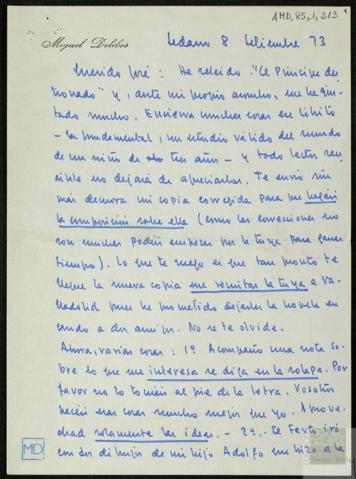 AMD, 85, 1, 213
Miguel Delibes
Sedano 8 Setiembre 73
Querido José: He releído "El Príncipe des
tronado" y, ante mi propio asombro, me ha gus
tado mucho. Encierra muchas cosas en librito
- la fundamental, un estudio válido del mundo
de un niño de tres años - y todo lector sen
sible no dejará de apreciarlas. Te envío sin
más demora mi copia corregida para que hagáis
la composición sobre ella (como las correcciones no
son muchas podéis empezar por la tuya para ganar
tiempo). Lo que te ruego es que tan pronto te
llegue la nueva copia me remitas la tuya a Va-
lladolid pues he prometido dejarles la novela en
crudo a dos amigos. No se te olvide.
Ahora, varias cosas: 1º Acompaño una nota so
bre lo que me interesa se diga en la solapa. Por
favor no lo toméis al pie de la letra. Vosotros
hacéis esas cosas mucho mejor que yo. Aprove
chad solamente las ideas. - 2º.- El texto irá
con dos dibujos de mi hijo Adolfo que hizo a la
MD